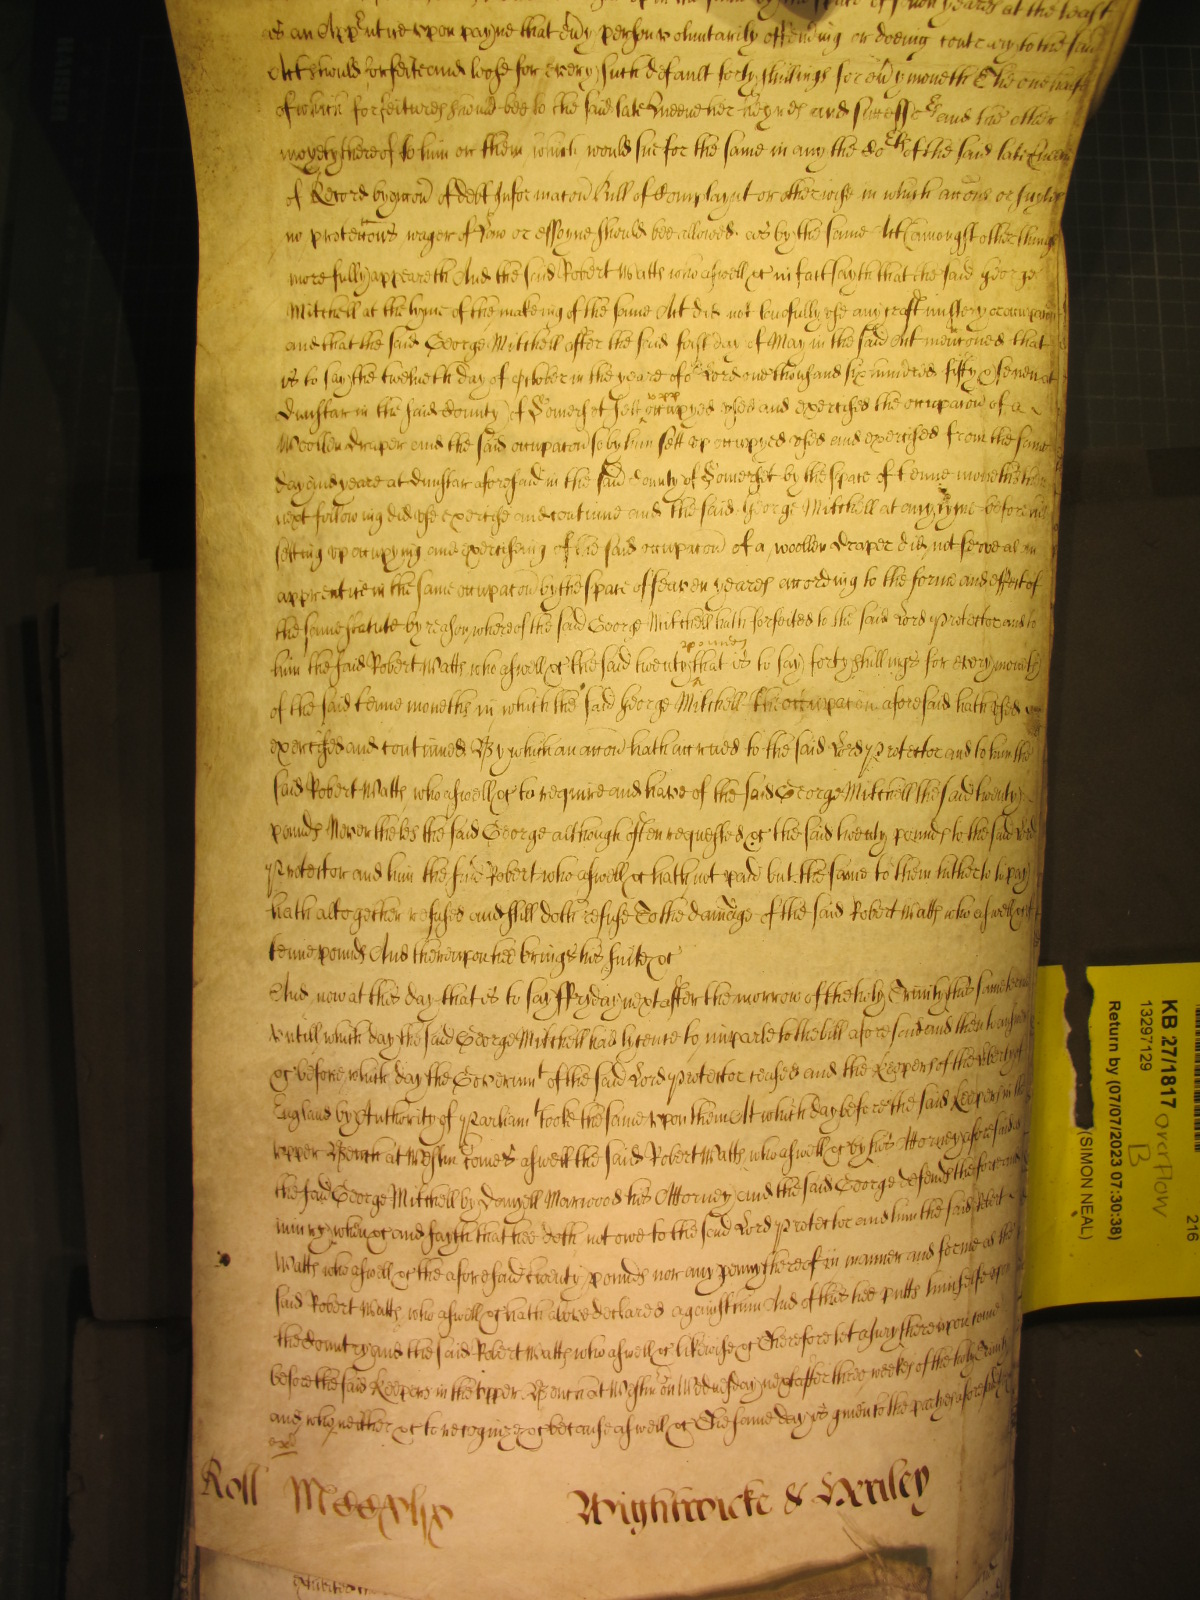 in the same by the space of seven yeares at the least
as an Apprentice upon payne that every person voluntarily offending or doeing contrary to the said
Act should forfeite and loose for every such default forty shillings for every moneth The one halfe
of which forfeitures should bee to the said late Queene her heyres and success^rs and the other
moyety thereof to him or them which would sue for the same in any the Co^rts of the said late Queene
of Record by accon of debt Informacon Bill of Complaynt or otherwise in which accons or suytes
no proteccons wager of Law or essoyne should bee allowed as by the same Act (amongst other things
more fully appeareth And the said Robert Watts who aswell &c in fact sayth that the said George
Mitchell at the tyme of the making of the same Act did not lawfully use any craft mistery or occupacon
and that the said George Mitchell after the said first day of May in the said Act menconed that
is to say the twelueth day of October in the yeare of o^r Lord one thousand six hundred fifty & seven at
Dunstar in the said County of Somerset sett upp occupyed used and exercised the occupacon of a
Woollen draper and the said occupacon so by him sett up occupyed used and exercised from the same
day and yeare at Dunstar aforesaid in the said County of Somerset by the space of tenne moneths then
next following did use exercise and continue and the said George Mitchell at any tyme before his
setting up occupying and exercising of the said occupacon of a woollen draper did not serve as an
apprentice in the same occupacon by the space of seaven yeares according to the forme and effect of
the same statute by reason whereof the said George Mitchell hath forfeited to the said Lord Protector and to
him the said Robert Watts who aswell &c the said twenty pounds that is to say forty shillings for every moneth
of the said tenne moneths in which the said George Mitchell the occupacon aforesaid hath used
exercised and continued By which an accon hath accrued to the said Lord Protector and to him the
said Robert Watts who aswell &c to require and have of the said George Mitchell the said twenty
pounds Neverthelesse the said George although often requested &c the said twenty pounds to the said Lord
Protector and him the said Robert who aswell &c hath not paid but the same to them hitherto to pay
hath altogether refused and still doth refuse To the damage of the said Robert Watts who aswell &c
tenne pounds And thereupon hee brings his suite &c
And now at this day that is to say Fryday next after the morrow of the holy Trinity this same terme
untill which day the said George Mitchell had licence to imparle to the bill aforesaid and then to answer
&c before which day the Governm^t of the said Lord Protector ceased and the Keepers of the liberty of
England by Authority of Parliam^t tooke the same upon them At which day before the said Keepers in the
upper Bench at Westm^r comes aswell the said Robert Watts who aswell &c by his Attorney aforesaid as
the said George Mitchell by Danyell Marwood his Attorney and the said George defends the force and
iniury when &c and sayth that hee doth not owe to the said Lord Protector and him the said Robert
Watts who aswell &c the aforesaid twenty pounds nor any penny thereof in manner and forme as the
said Robert Watts who aswell &c hath above declared against him And of this hee putts himselfe upon
the Country and the said Robert Watts who aswell &c likewise &c Therefore let a Jury thereupon come
before the said Keepers in the upper Bench at Westm^r on Wednesday next after three weekes of the holy Trinity
and who neither &c to recognize &c because aswell &c The same day is given to the partyes aforesaid
Roll Mccxlix Wightwicke & Heriley
KB 27/1817 overflow
B
13297129
Return by (07/07/2023 07:30:38)
(SIMON NEAL)
216